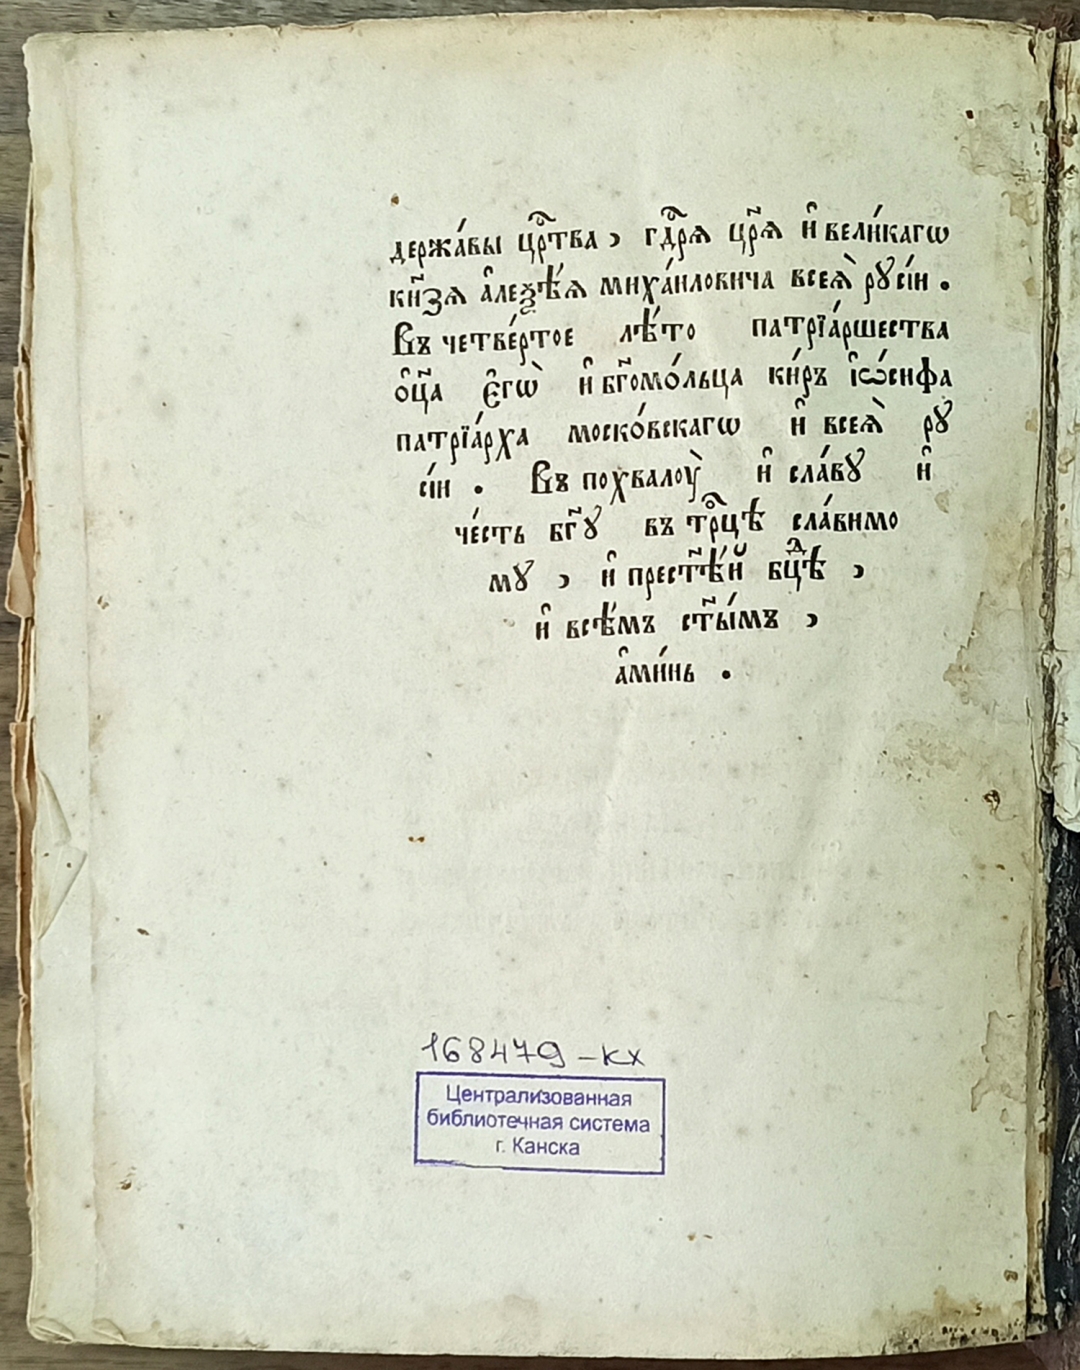 держа́вы црⷭ҇тва , гдⷭ҇рѧ цр҃ѧ и҆ вели́кагѡ
кн҃зѧ а҆леѯѣ́ѧ миха́иловича всеѧ̀ рꙋсі́и .
Въ четве́ртое лѣ́то патрїа́ршества
ѻ҆ц҃а є҆гѡ̀ и҆ бг҃омо́льца ки́ръ і҆ѡ́сифа
патрїа́рха моско́вскагѡ и҆ всеѧ̀ рꙋ
сі́и . Въ похвалоу̀ и҆ сла́вꙋ и҆
че́сть бг҃ꙋ въ трⷪ҇цѣ сла́вимо
мꙋ , и҆ прест҃ѣ́й бцⷣѣ ,
и҆ всѣ́мъ ст҃ы́мъ ,
а҆ми́нь .
168479-кх
Централизованная
библиотечная система
г. Канска